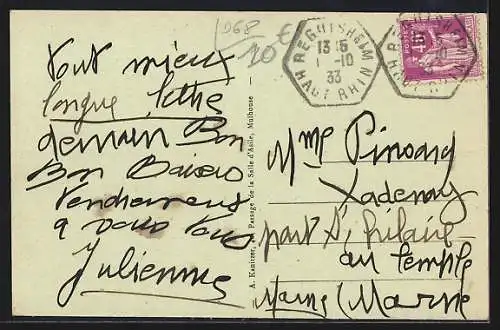 Tout mieux
longue lettre
demain Bon
Bon Baisers
Tendresses
a vous tous
Julienne
D68
10 €
REGUISHEIM
13 15
1 -10
33
HAUT RHIN
40c
A. Kanitzer, Passage de la Salle d'Asile, Mulhouse
Mme Pinsard
part St hilaire
au temple
Marne (Marne